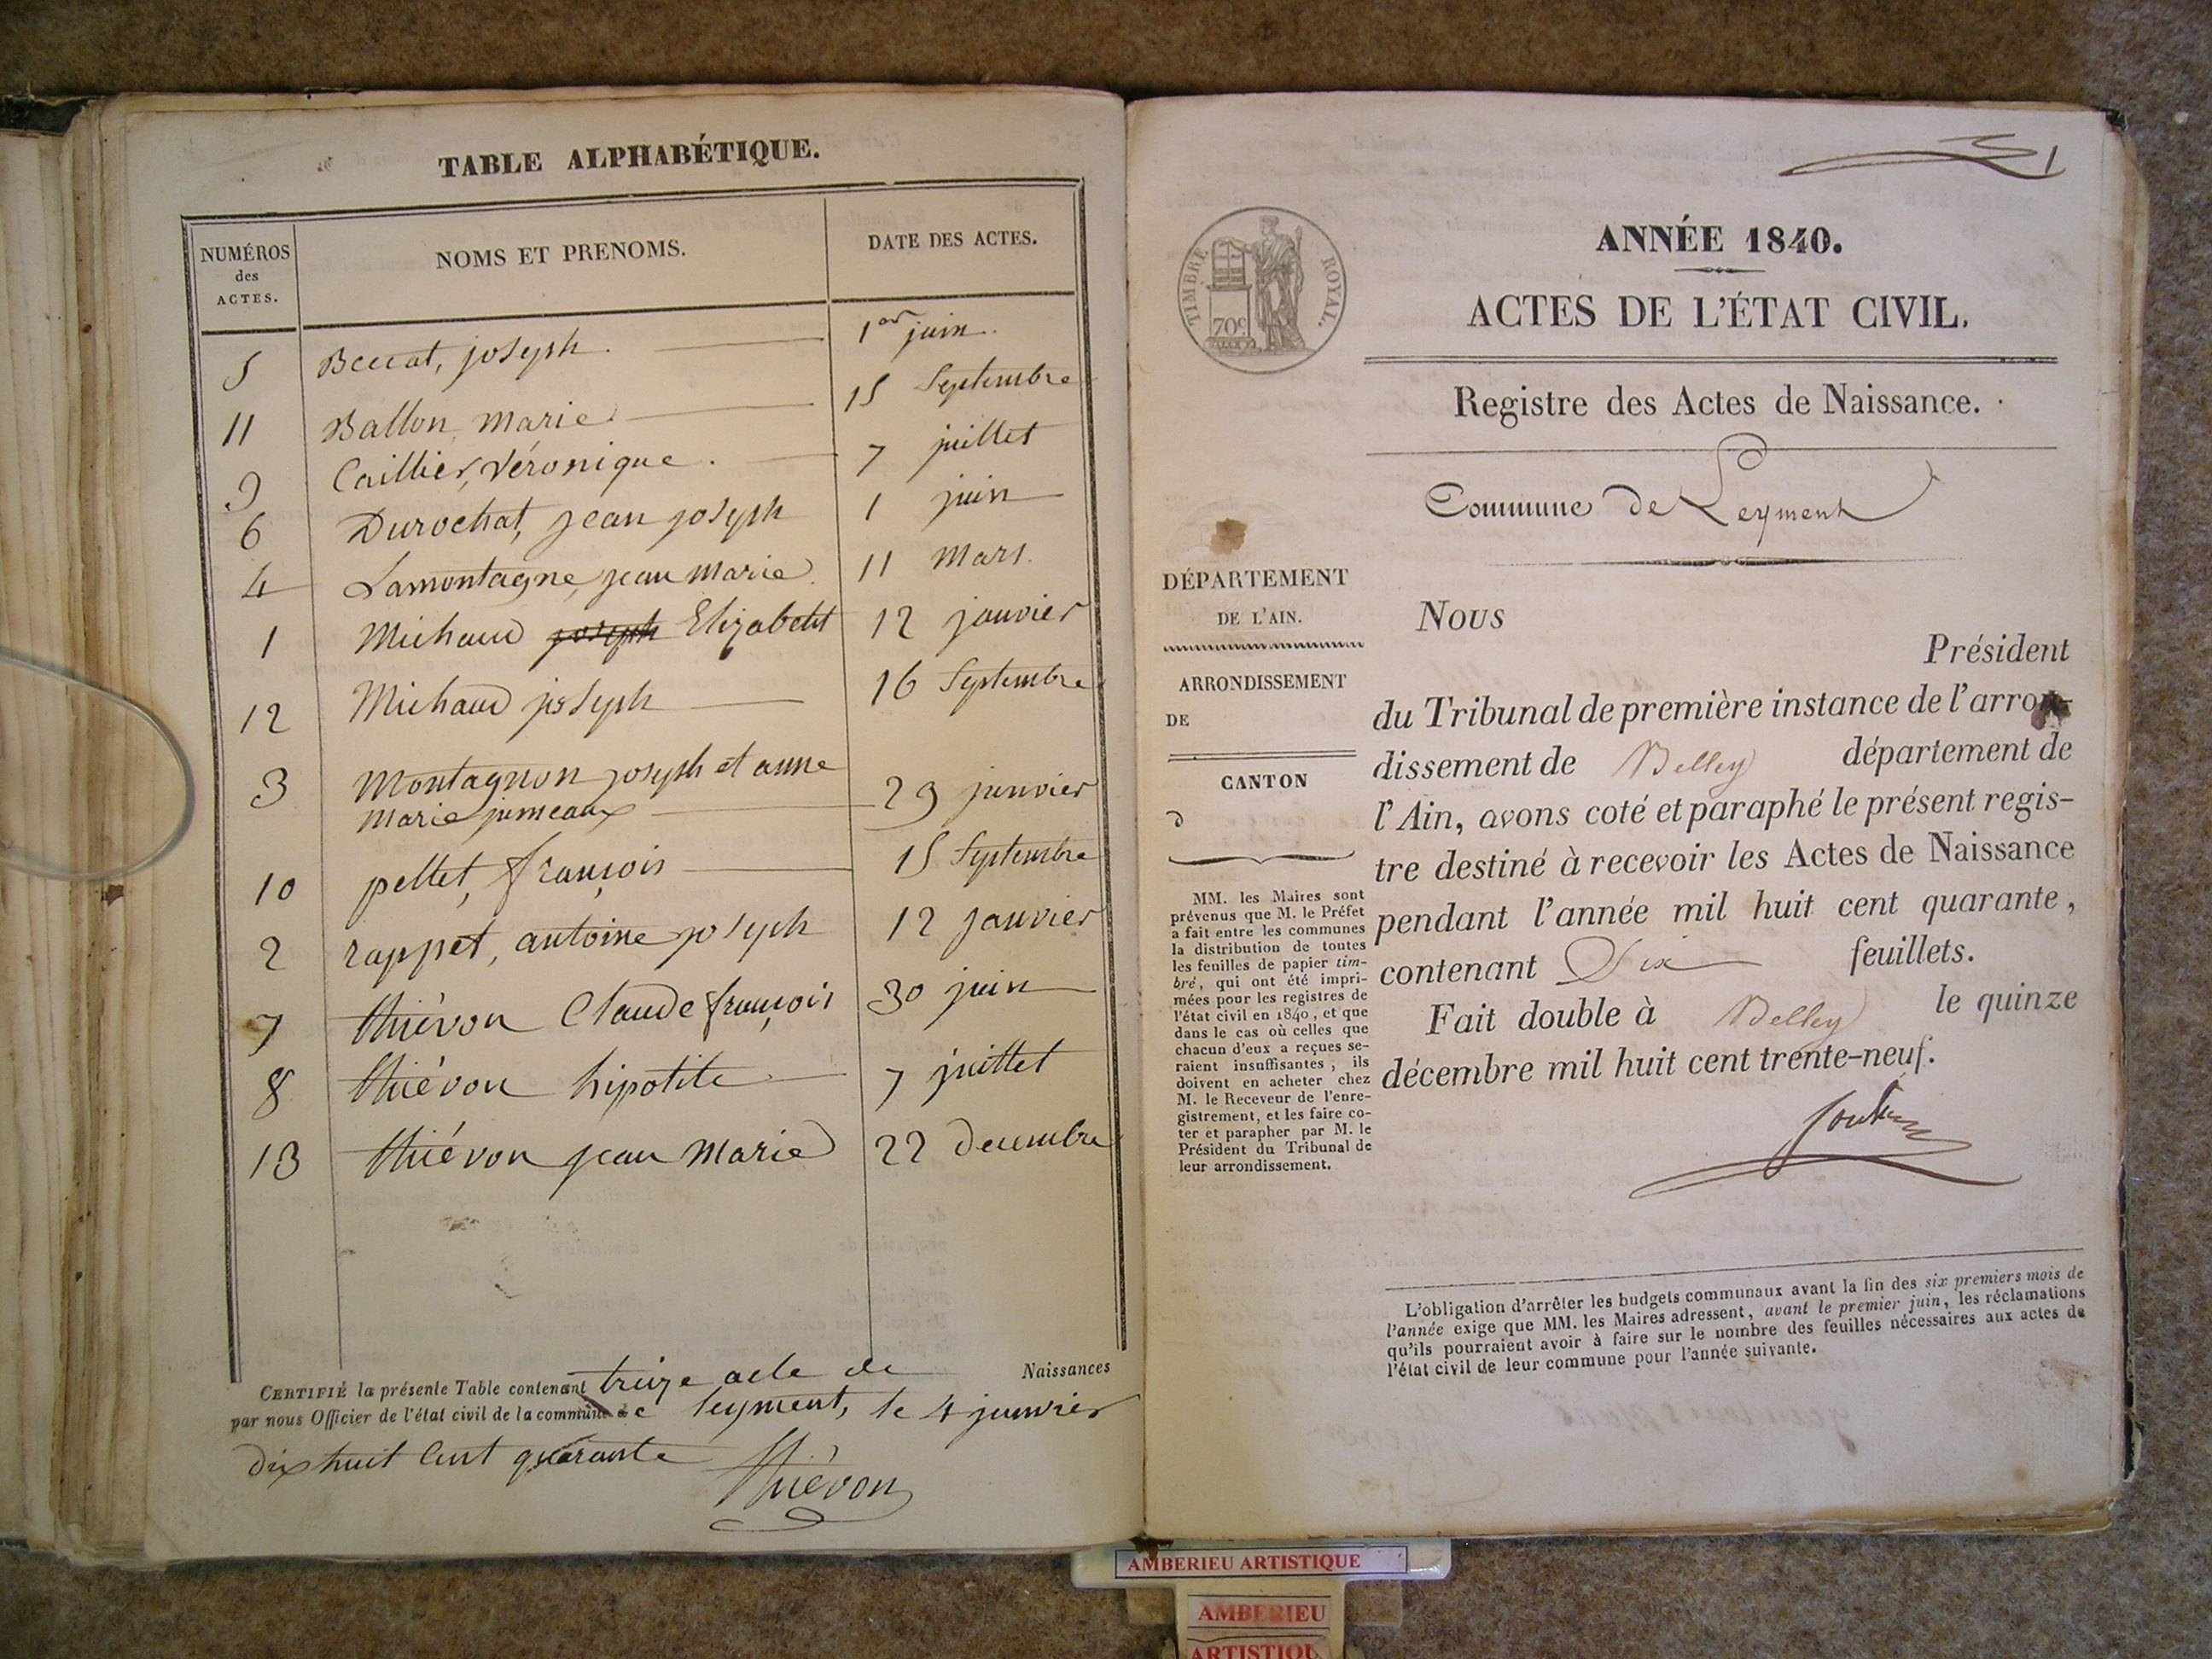 TABLE ALPHABÉTIQUE.
NUMÉROS des ACTES. NOMS ET PRENOMS. DATE DES ACTES.
5 Beccat, joseph. 1er juin.
11 Ballon, marie 15 Septembre
9 Caillier, Véronique. 7 juillet
6 Durochat, jean joseph 1 juin
4 Lamontagne, jean marie. 11 Mars.
1 Michaud joseph Elizabeth 12 janvier
12 Michaud joseph 16 Septembre
3 Montagnon joseph et anne
marie jumeaux 29 janvier
10 pellet, françois 15 Septembre
2 rappet, antoine joseph 12 janvier
7 thiévon Claude françois 30 juin
8 thiévon hipolite 7 juillet
13 thiévon jean marie 22 decembre
CERTIFIÉ la présente Table contenant treize acte de Naissances
par nous Officier de l'état civil de la commune de leyment, le 4 janvier
dix huit cent quarante Thiévon
1
TIMBRE ROYAL.
70c
ANNÉE 1840.
ACTES DE L'ÉTAT CIVIL.
Registre des Actes de Naissance.
Commune de Leyment
DÉPARTEMENT
DE L'AIN.
ARRONDISSEMENT
DE
CANTON
d
MM. les Maires sont
prévenus que M. le Préfet
a fait entre les communes
la distribution de toutes
les feuilles de papier tim-
bré, qui ont été impri-
mées pour les registres de
l'état civil en 1840, et que
dans le cas où celles que
chacun d'eux a reçues se-
raient insuffisantes, ils
doivent en acheter chez
M. le Receveur de l'enre-
gistrement, et les faire co-
ter et parapher par M. le
Président du Tribunal de
leur arrondissement.
NOUS
Président
du Tribunal de première instance de l'arron-
dissement de Belley département de
l'Ain, avons coté et paraphé le présent regis-
tre destiné à recevoir les Actes de Naissance
pendant l'année mil huit cent quarante,
contenant Six feuillets.
Fait double à Belley le quinze
décembre mil huit cent trente-neuf.
L'obligation d'arrêter les budgets communaux avant la fin des six premiers mois de
l'année exige que MM. les Maires adressent, avant le premier juin, les réclamations
qu'ils pourraient avoir à faire sur le nombre des feuilles nécessaires aux actes de
l'état civil de leur commune pour l'année suivante.
AMBERIEU ARTISTIQUE
AMBERIEU
ARTISTIQU